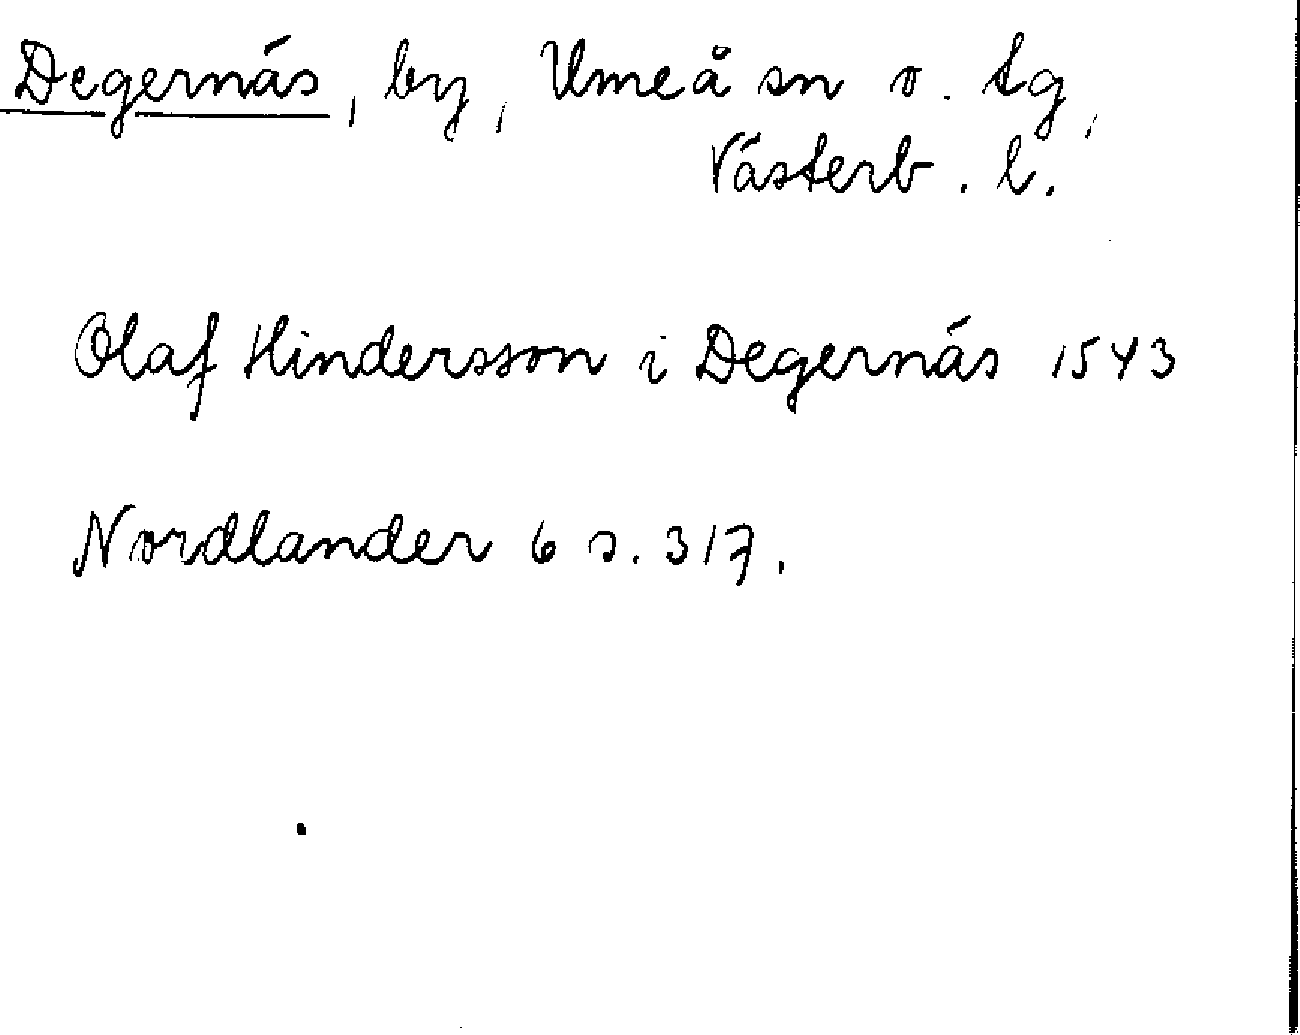 Degernäs, by, Umeå sn o. tg,
Västerb. l.
Olaf Hindersson i Degernäs 1543
Nordlander 6 s. 317.